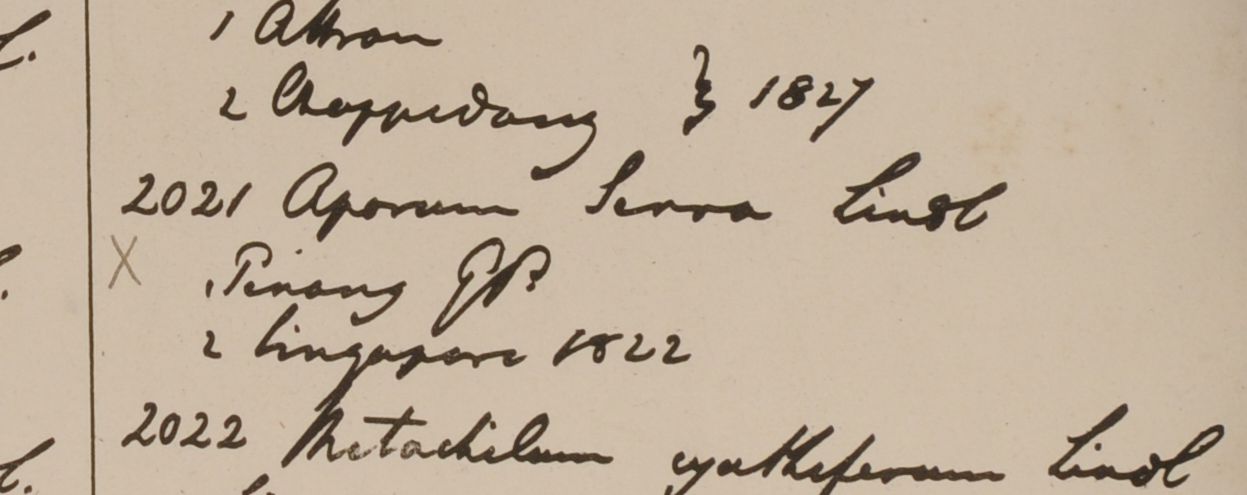 1 Attran
2 Chappedong } 1827
2021 Aporum Serra Lindl
X 1 Pinang GP
2 Singapore 1822
2022 Metachilum cyathiferum Lindl